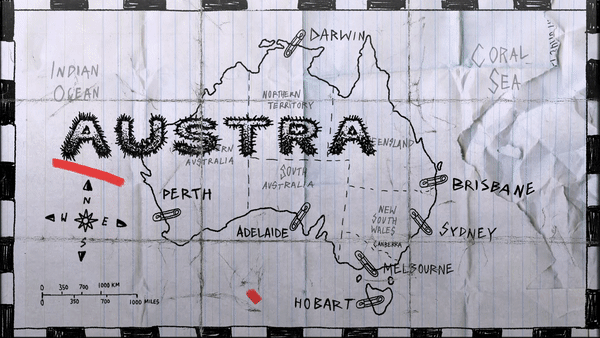 DARWIN
CORAL
SEA
INDIAN
OCEAN
NORTHERN
TERRITORY
AUSTRA
ENSLAND
ERN
AUSTRALIA
SOUTH
AUSTRALIA
PERTH
BRISBANE
N
W E
S
NEW
SOUTH
WALES
ADELAIDE
SYDNEY
CANBERRA
MELBOURNE
0 350 700 1000 KM
0 350 700 1000 MILES
HOBART